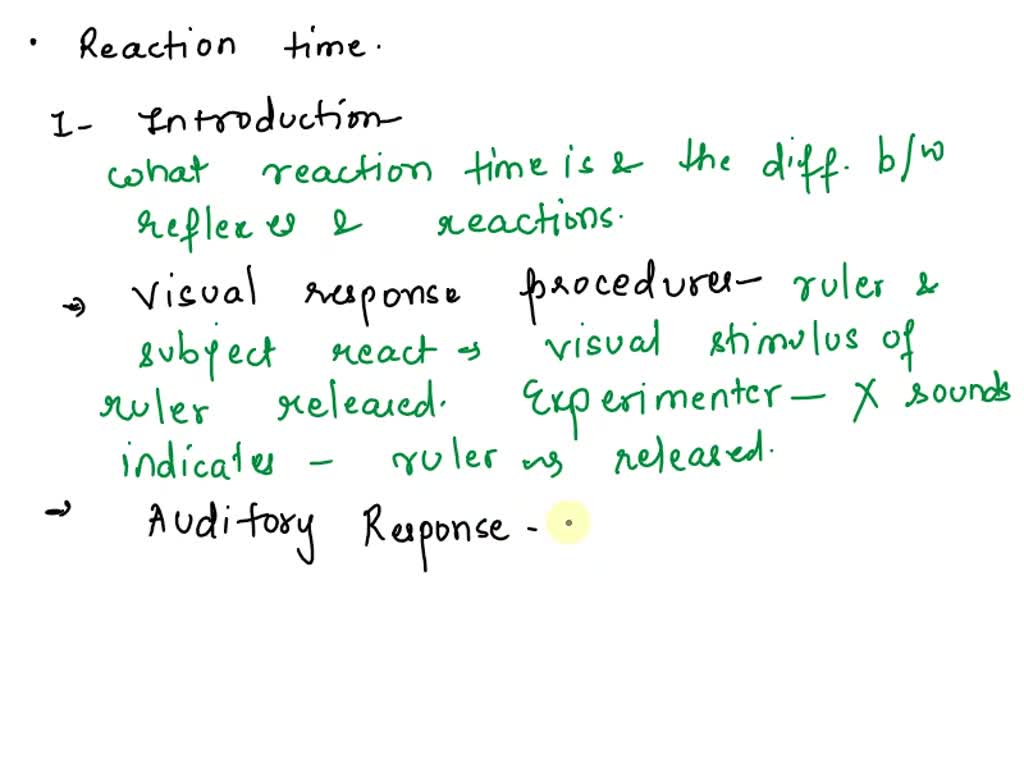 · Reaction time.
I- Introduction
what reaction time is & the diff. b/w
reflexes & reactions.
→ Visual response procedures- ruler &
subject react → visual stimulus of
ruler released. Experimenter - X sounds
indicates - ruler → released.
→ Auditory Response -